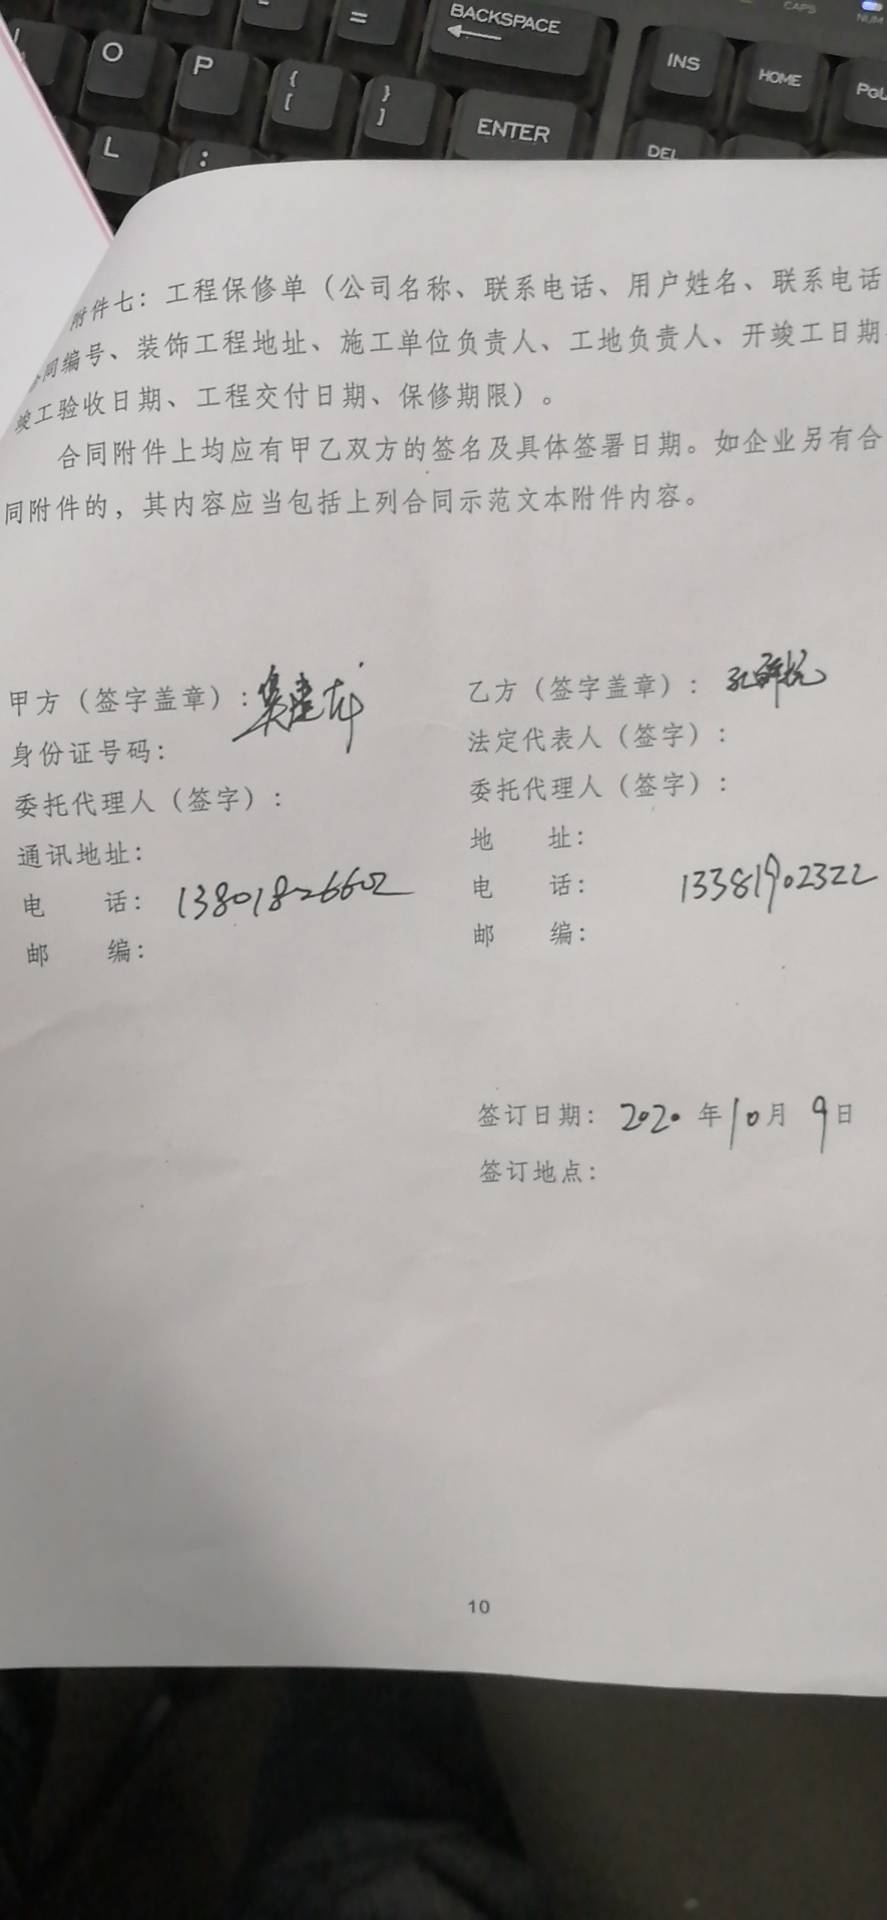 =
BACKSPACE
CAPS
NUM
O
P
{
[
}
]
INS
HOME
L
:
ENTER
DEL
附件七：工程保修单（公司名称、联系电话、用户姓名、联系电话
合同编号、装饰工程地址、施工单位负责人、工地负责人、开竣工日期
竣工验收日期、工程交付日期、保修期限）。
合同附件上均应有甲乙双方的签名及具体签署日期。如企业另有合
同附件的，其内容应当包括上列合同示范文本附件内容。
甲方（签字盖章）：
身份证号码：
委托代理人（签字）：
通讯地址：
电 话：13801826602
邮 编：
乙方（签字盖章）：
法定代表人（签字）：
委托代理人（签字）：
地 址：
电 话：13381902322
邮 编：
签订日期：2020年10月9日
签订地点：
10